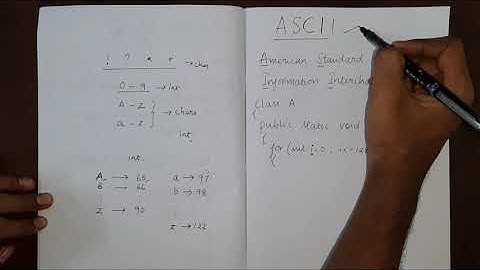 ! ? * + → char
0 - 9 → Int
A - Z } → chars
a - z
Int.
int.
A → 65 a → 97
B → 66 b → 98
z → 90
z → 122
ASCII
American Standard
Information Interch
class A
{
public static void
{
for (int i=0 ;
{